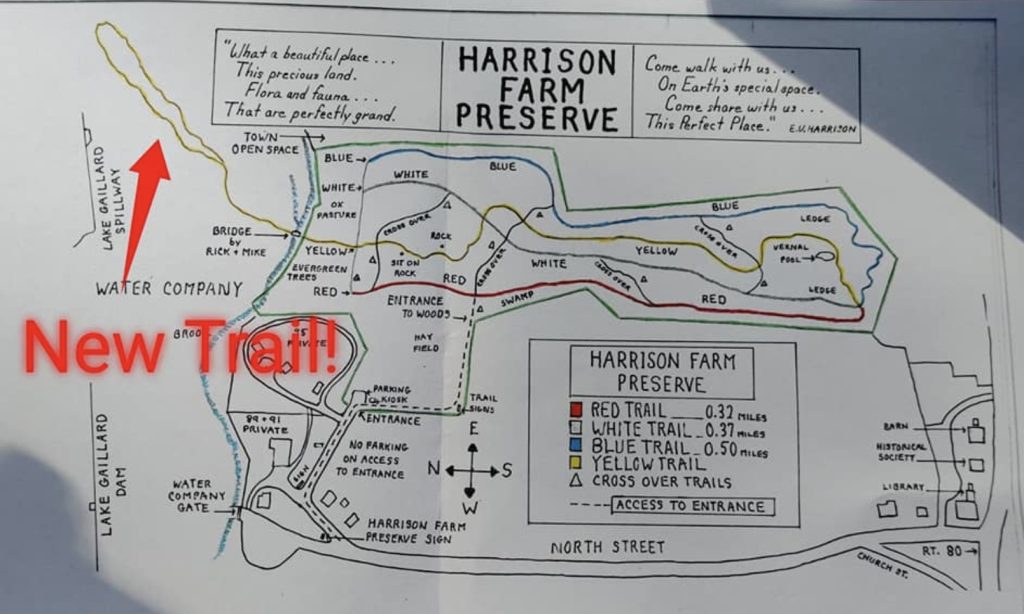 "What a beautiful place...
This precious land.
Flora and fauna....
That are perfectly grand.
HARRISON
FARM
PRESERVE
Come walk with us...
On Earth's special space.
Come share with us...
This Perfect Place."
E.U. HARRISON
TOWN
OPEN SPACE
BLUE
BLUE
WHITE
WHITE
OX
PASTURE
CROSS OVER
ROCK
BRIDGE
by
RICK + MIKE
YELLOW
SIT ON
ROCK
EVERGREEN
TREES
RED
RED
CROSS OVER
WHITE
YELLOW
BLUE
LEDGE
CROSS OVER
VERNAL
POOL
CROSS OVER
LEDGE
RED
SWAMP
ENTRANCE
TO WOODS
HAY
FIELD
LAKE GAILLARD
SPILLWAY
WATER COMPANY
New Trail!
95
PRIVATE
PARKING
KIOSK
ENTRANCE
TRAIL
SIGNS
89+91
PRIVATE
NO PARKING
ON ACCESS
TO ENTRANCE
SIGN
E
N
S
W
LAKE GAILLARD
DAM
WATER
COMPANY
GATE
HARRISON FARM
PRESERVE SIGN
HARRISON FARM
PRESERVE
RED TRAIL ___ 0.32 MILES
WHITE TRAIL _ 0.37 MILES
BLUE TRAIL _ 0.50 MILES
YELLOW TRAIL
CROSS OVER TRAILS
ACCESS TO ENTRANCE
BARN
HISTORICAL
SOCIETY
LIBRARY
NORTH STREET
CHURCH ST.
RT. 80